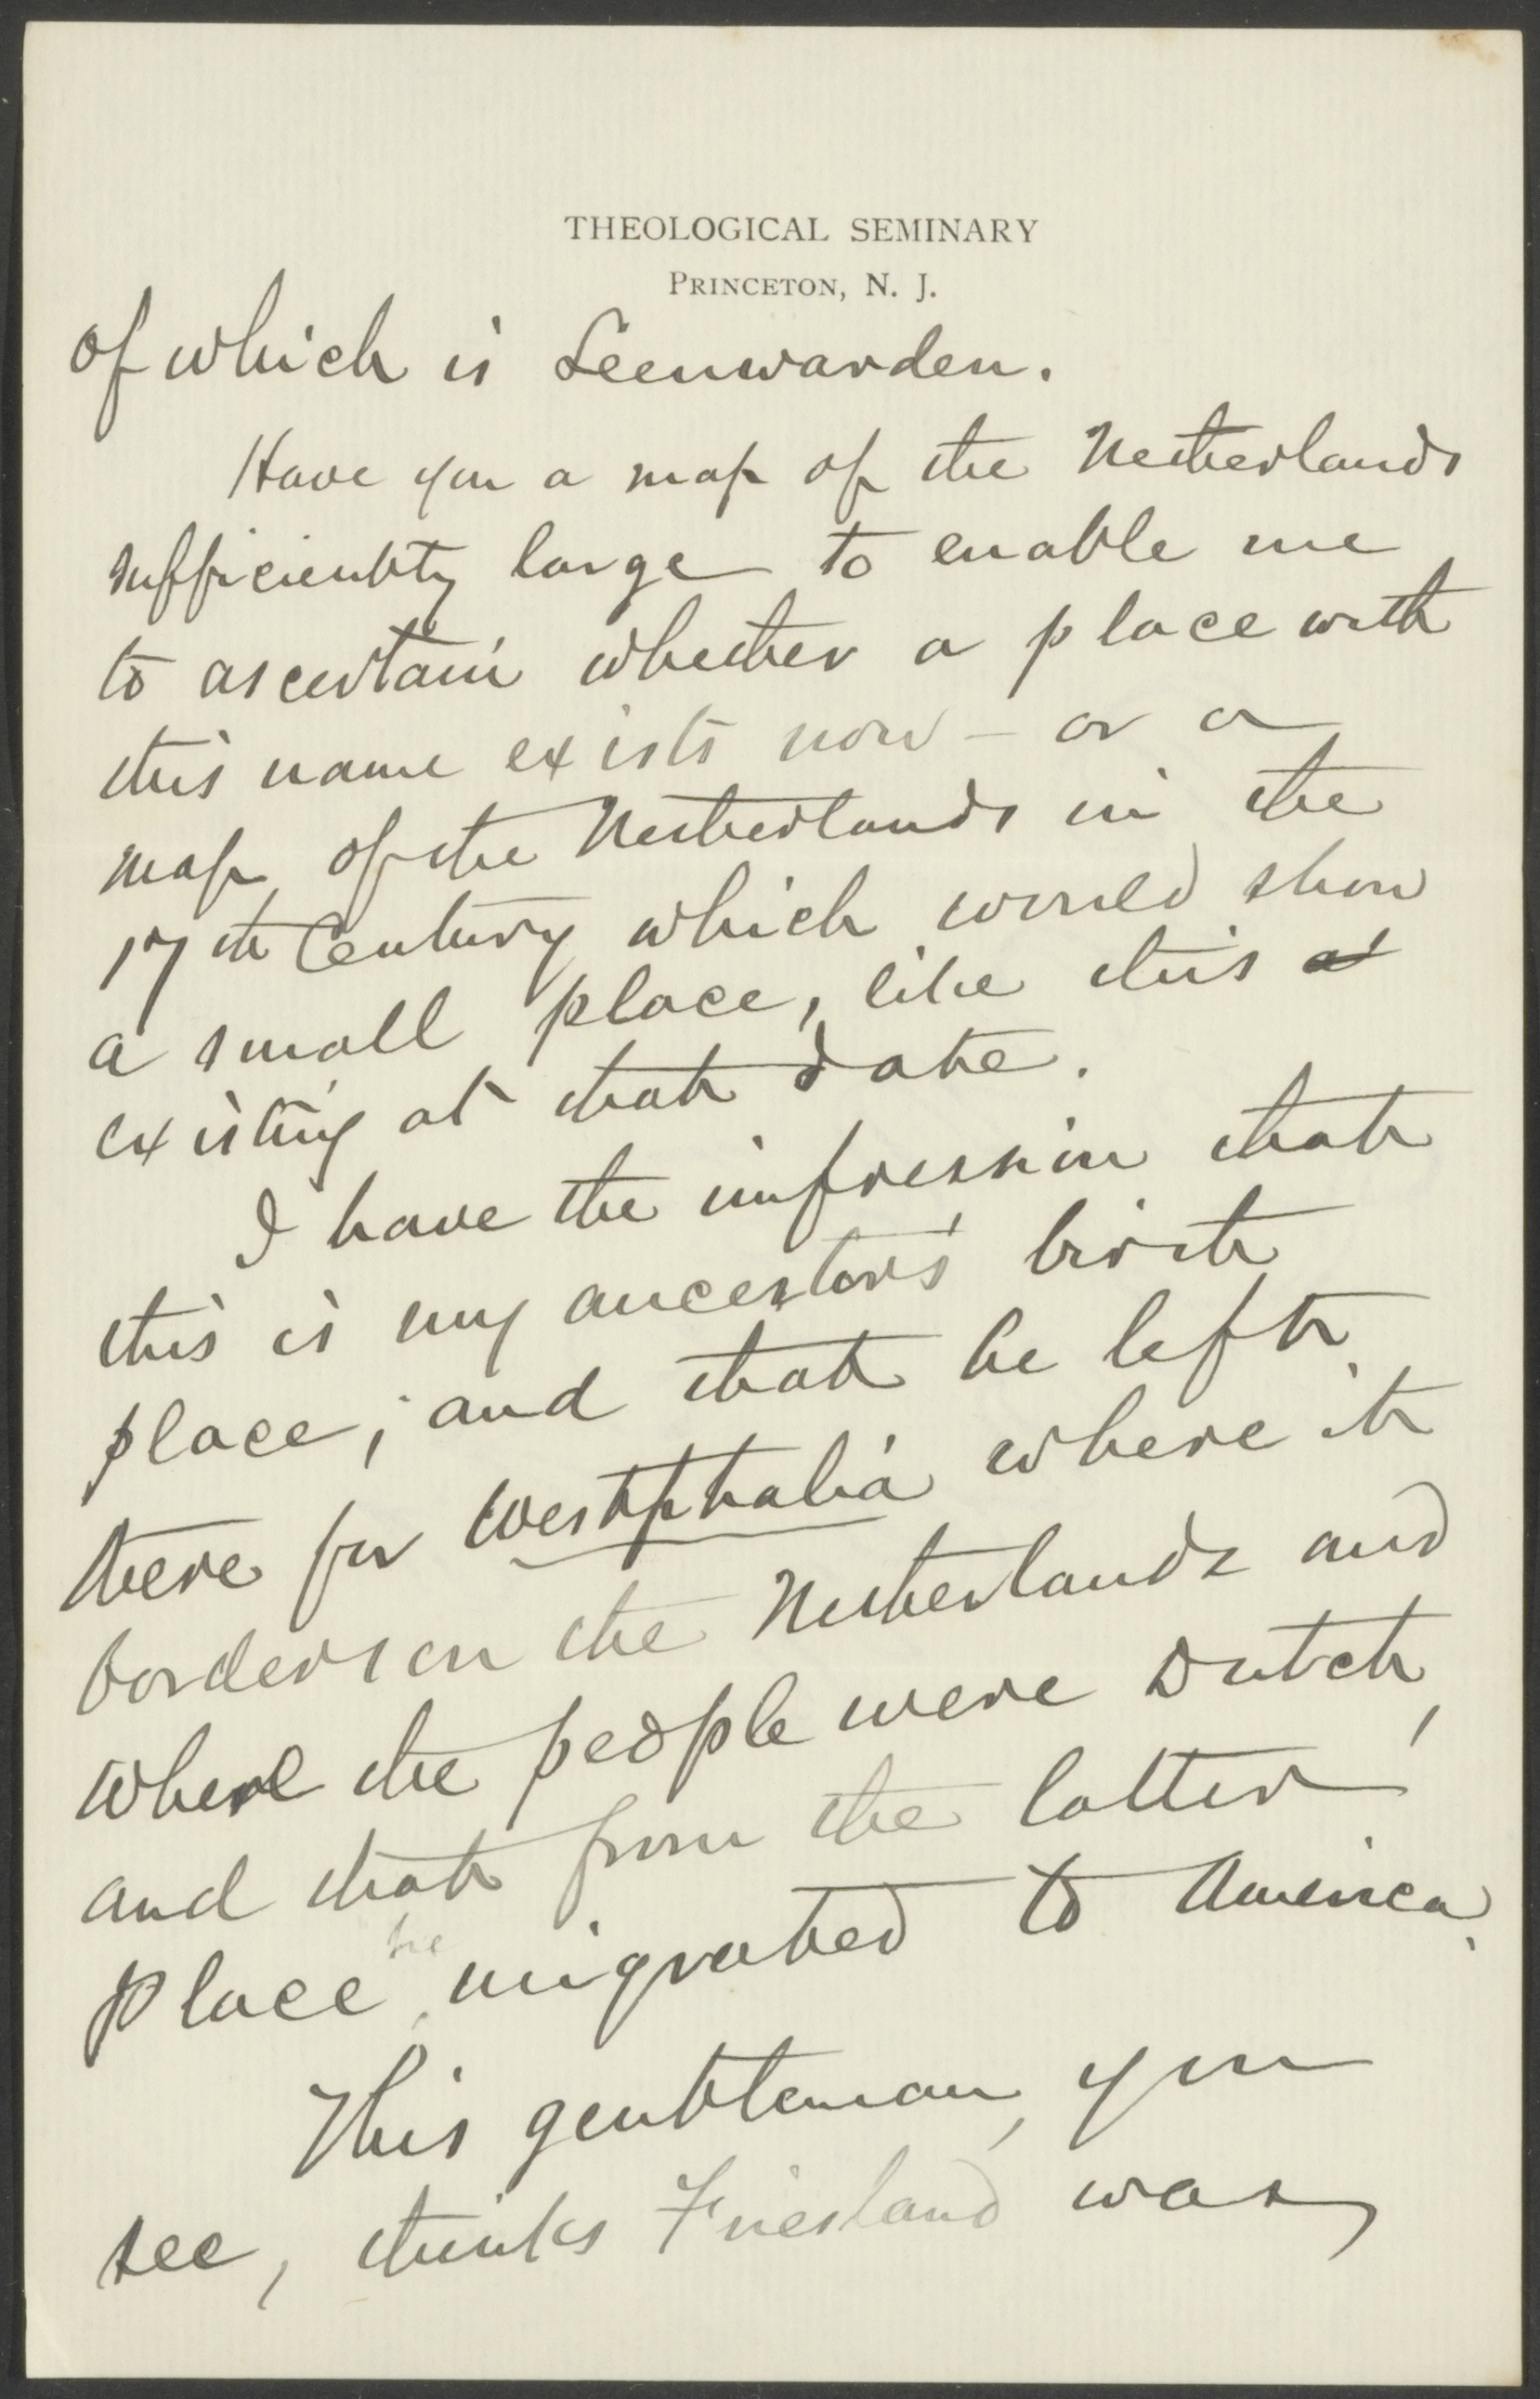 THEOLOGICAL SEMINARY
PRINCETON, N. J.
of which is Leenwarden.
Have you a map of the Netherlands
sufficiently large to enable me
to ascertain whether a place with
this name exists now – or a
map of the Netherlands in the
17th Century which would show
a small place, like this
existing at that date.
I have the impression that
this is my ancestor's birth
place; and that he left
there for Westphalia where it
borders on the Netherlands and
where the people were Dutch,
and that from the latter
he
place migrated to America.
This gentleman, you
see, thinks Friesland was,